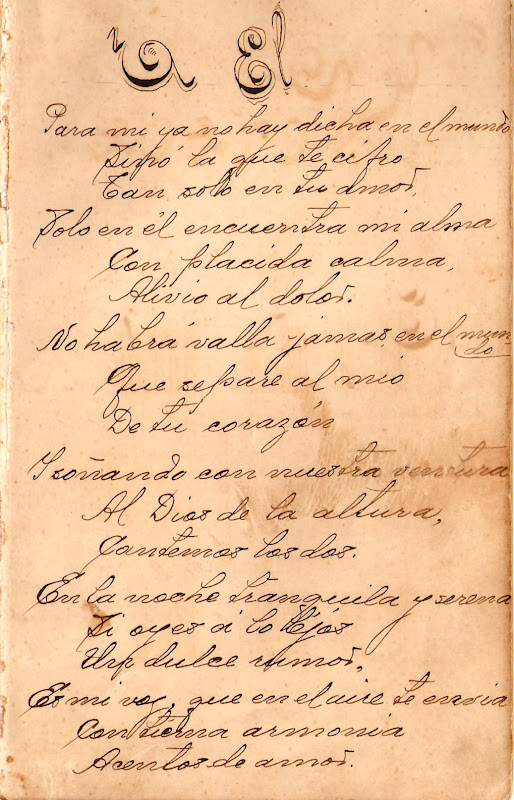 A El
Para mi ya no hay dicha en el mundo
Sinó la que te cifro
Tan solo en tu amor,
Solo en él encuentra mi alma
Con placida calma,
Alivio al dolor.
No habrá valla jamas en el mundo
Que separe al mio
De tu corazón
I soñando con nuestra ventura
Al Dios de la altura,
Cantemos los dos.
En la noche tranquila y serena
Si oyes á lo léjos
Un dulce rumor,
Es mi voz, que en el aire te envia
Con tierna armonia
Acentos de amor.